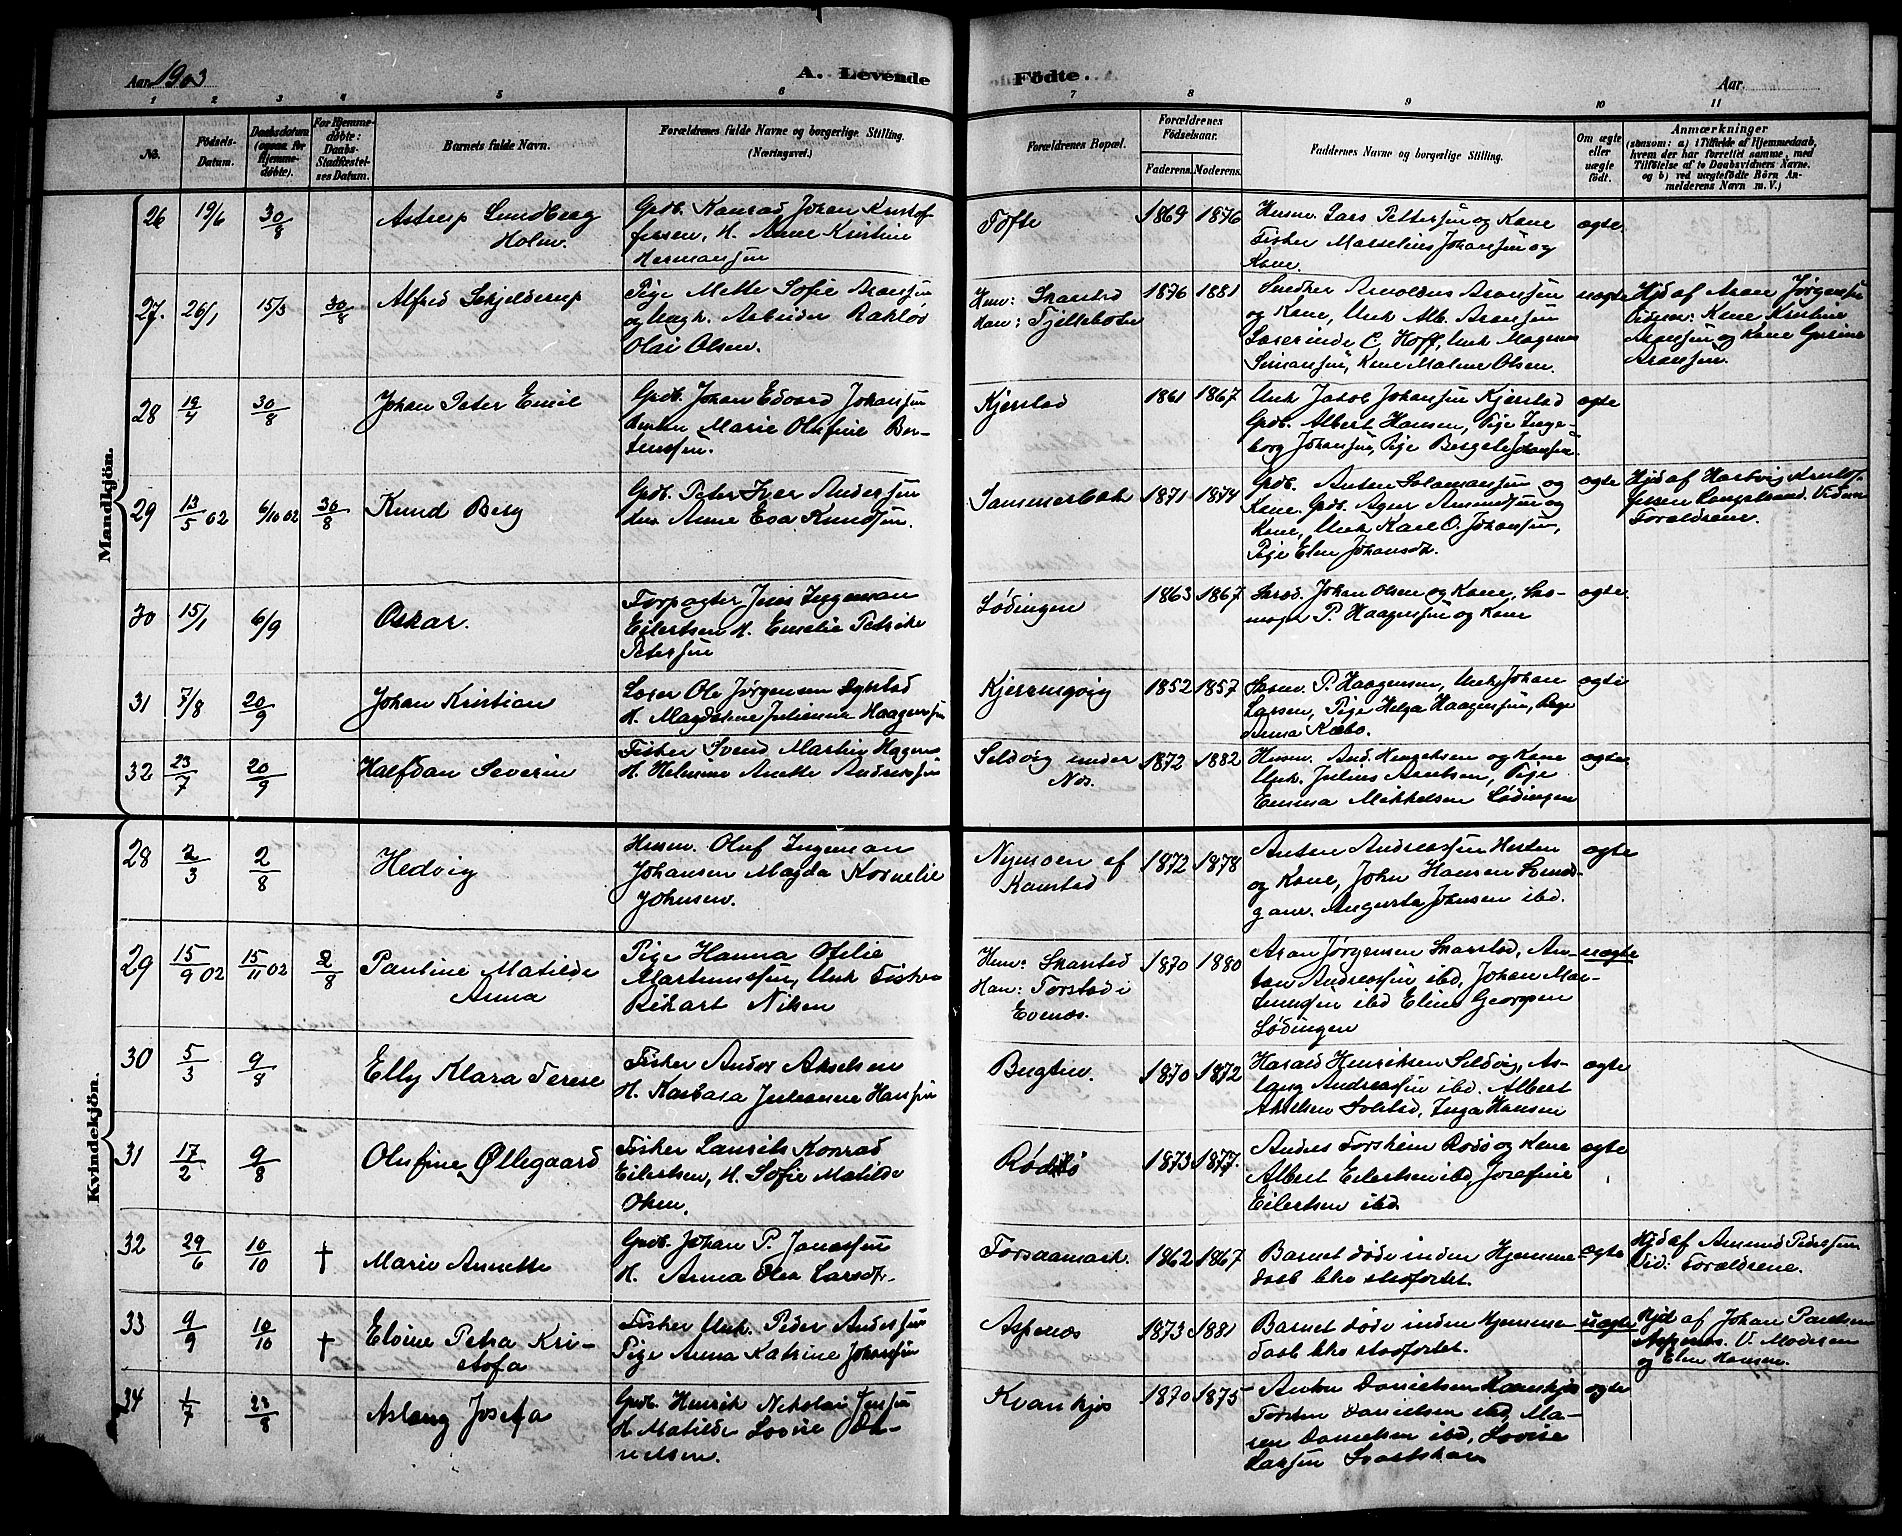 Aar 1903
A. Levende
Födte.
Aar
1 2 3 4 5 6 7 8 9 10 11
No.
Födsels-
Datum.
Daabsdatum
(ogsaa for
Hjemme-
døbte).
For Hjemme-
døbte:
Daabs-
Stadfæstel-
ses Datum.
Barnets fulde Navn.
Forældrenes fulde Navne og borgerlige Stilling.
(Næringsvei.)
Forældrenes Bopæl.
Forældrenes
Fødselsaar.
Faderens. Moderens.
Faddernes Navne og borgerlige Stilling.
Om ægte
eller
uægte
født.
Anmærkninger
(saasom: a) i Tilfælde af Hjemmedaab,
hvem der har forrettet samme, med
Tilføielse af to Daabsvidners Navne.
og b) ved uægtefødte Börn An-
melderens Navn m. V.)
Mandkjön.
26 19/6 30/8
Astrup Sundberg
Holm.
Grdb. Konrad Johan Kristof
fersen, H. Anne Kristine
Hermansen
Tofte
1869 1876
Husm. Lars Pettersen og Kone
Fisker Marselius Johansen og
Kone.
ægte
27. 26/1 15/3 30/8
Alfred Schjelderup
Pige Mette Sofie Aronsen
og Ungk. Arbeider
Olai Olsen.
Hun: Skarstad
Han:
1876 1881
Snedker Arnoldus Aronsen
og Kone, Unk Alb. Aronsen
Læserinde C. Hoff, Unk Magnus
Simonsen, Kone Maline Olsen.
uægte
Hjd af Aron Jørgensen
Vidner: Kone Kristine
Aronsen og Kone Gurine
Aronsen.
28 19/4 30/8
Johan Peter Emil
Grdb. Johan Edvard Johansen
Marie Olufine Ber-
tensen.
Kjerstad
1861 1867
Unk Jakob Johansen Kjerstad
Grdb. Albert Hansen, Pige Inge-
borg Johansen, Pige Bergete Johansen
ægte
29 13/5 02 6/10 02 30/8
Knud Berg
Grdb. Peter Iver Andersen
Hus Anne Eva Knudsen.
Sommerbak
1871 1874
Grdb. Anton Salamonsen og
Kone. Grdb. Ager Amundsen og
Kone, Unk Karl O. Johansen,
Pige Elen Johansdt.
ægte
Hjd af Hartvig Kristof
fersen Langstrand. Vidner
Forældrene.
30 15/1 6/9
Oskar.
Forpagter Jens Ingeman
Eilertsen H. Emelie Petrike
Petersen
Lødingen
1863 1867
Skræd. Johan Olsen og Kone, Sko-
mager P. Haagensen og Kone
ægte
31 7/8 20/9
Johan Kristian
Loser Ole Jørgensen
H. Magdalene Julianne Haagensen
Kjerringvig
1852 1857
P. Haagensen, Unk Johan
Larsen, Pige Helga Haagensen, Pige
Anna Kæbo.
ægte
32 23/7 20/9
Halfdan Severin
Fisker Svend Martin Hagens
H. Helmine Anette Andreassen
Seldvig under
Næs.
1872 1882
Husm. And. Hingelsen og Kone
Unk. Julius Arntsen, Pige
Emma Mikkelsen Lødingen
ægte
Kvindekjön.
28 2/3 2/8
Hedvig
Husm. Oluf Ingeman
Johansen Magda Kornelie
Johnsen.
Nymoen af
Kanstad
1872 1878
Anton Andreassen Hesten
og Kone, John Hansen Sund-
gaar. Augusta Johnsen ibd.
ægte
29 15/9 02 15/11 02 2/8
Pauline Matilde
Anna
Pige Hanna Ofelie
Martinussen, Unk Fisker
Rikart Nilsen
Hun: Skarstad
Han: Forstad i
Evenæs.
1870 1880
Aron Jørgensen Skarstad, An-
ton Andreassen ibd, Johan Mar-
tinussen ibd Eline Georgsen
Lødingen
uægte
30 5/3 9/8
Elly Klara Terese
Fisker Andor Akselsen
H. Karbara Julianne Hansen
Bugten.
1870 1872
Harald Henriksen Seldvig, As-
laug Andreassen ibd. Albert
Akselsen Solstad, Inga Hansen
ægte
31 17/2 9/8
Olufine Øllegaard
Fisker Laurits Konrad
Eilertsen, H. Sofie Matilde
Olsen.
Rødsø
1873 1877.
Anders Forsheim Rødsø og Kone
Albert Eilertsen ibd, Josefine
Eilertsen ibd.
ægte
32 29/6 10/10 †
Marie Annette
Grdb. Johan P. Jonassen
H. Anna Olea Larsdt.
Forsaamark.
1862 1867
Barnet døde inden Hjemme
daab blev stadfæstet.
ægte
Hjd af Amund Pedersen
Vid: Forældrene.
33 9/9 10/10 †
Eloine Petra Kri-
stofa
Fisker Unk. Peder Andersen
Pige Anna Katrine Johansen
Aspenæs
1873 1881
Barnet døde inden Hjemme
daab blev stadfæstet.
uægte
Hjd af Johan Paulsen
Aspenæs. V. Moderen
og Elen Hansen.
34 1/7 23/8
Aslaug Josefa
Grdb. Henrik Nikolai Jensen
H Matilde Lovise Da-
nielsen.
Kvankjos
1870 1875
Anton Danielsen Kvankjos
Torsten Danielsen ibd, Ma-
ren Danielsen ibd, Lovise
Larsen Svartskar
ægte